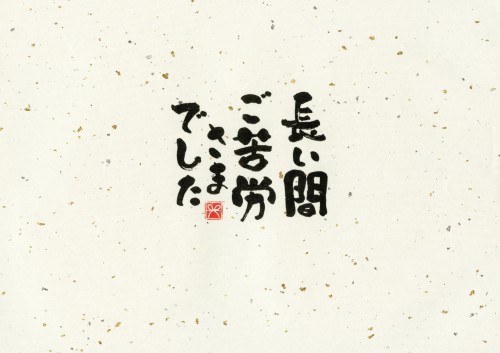 長い間
ご苦労
さま
でした